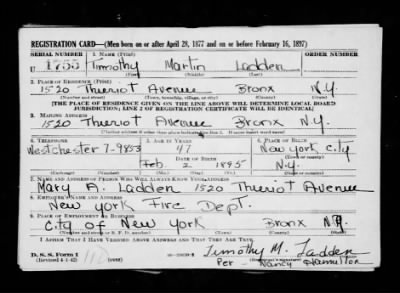 REGISTRATION CARD—(Men born on or after April 28, 1877 and on or before February 16, 1897)
SERIAL NUMBER 1. NAME (Print) ORDER NUMBER
U 1755 Timothy Martin Ladden
(First) (Middle) (Last)
2. PLACE OF RESIDENCE (Print)
1520 Theriot Avenue Bronx N.Y.
(Number and street) (Town, township, village, or city) (County) (State)
[THE PLACE OF RESIDENCE GIVEN ON THE LINE ABOVE WILL DETERMINE LOCAL BOARD
JURISDICTION; LINE 2 OF REGISTRATION CERTIFICATE WILL BE IDENTICAL]
3. MAILING ADDRESS
1520 Theriot Avenue Bronx N.Y.
[Mailing address if other than place indicated on line 2. If same insert word same]
4. TELEPHONE 5. AGE IN YEARS 6. PLACE OF BIRTH
47 New York City
Westchester 7-9853 DATE OF BIRTH (Town or county)
Feb 2 1895 N.Y.
(Exchange) (Number) (Mo.) (Day) (Yr.) (State or country)
7. NAME AND ADDRESS OF PERSON WHO WILL ALWAYS KNOW YOUR ADDRESS
Mary A. Ladden 1520 Theriot Avenue
8. EMPLOYER'S NAME AND ADDRESS
New York Fire Dept.
9. PLACE OF EMPLOYMENT OR BUSINESS
City of New York Bronx N.Y.
(Number and street or R. F. D. number) (Town) (County) (State)
I AFFIRM THAT I HAVE VERIFIED ABOVE ANSWERS AND THAT THEY ARE TRUE.
D. S. S. Form 1 Timothy M. Ladden
(Revised 4-1-42) Per Nancy Hamilton